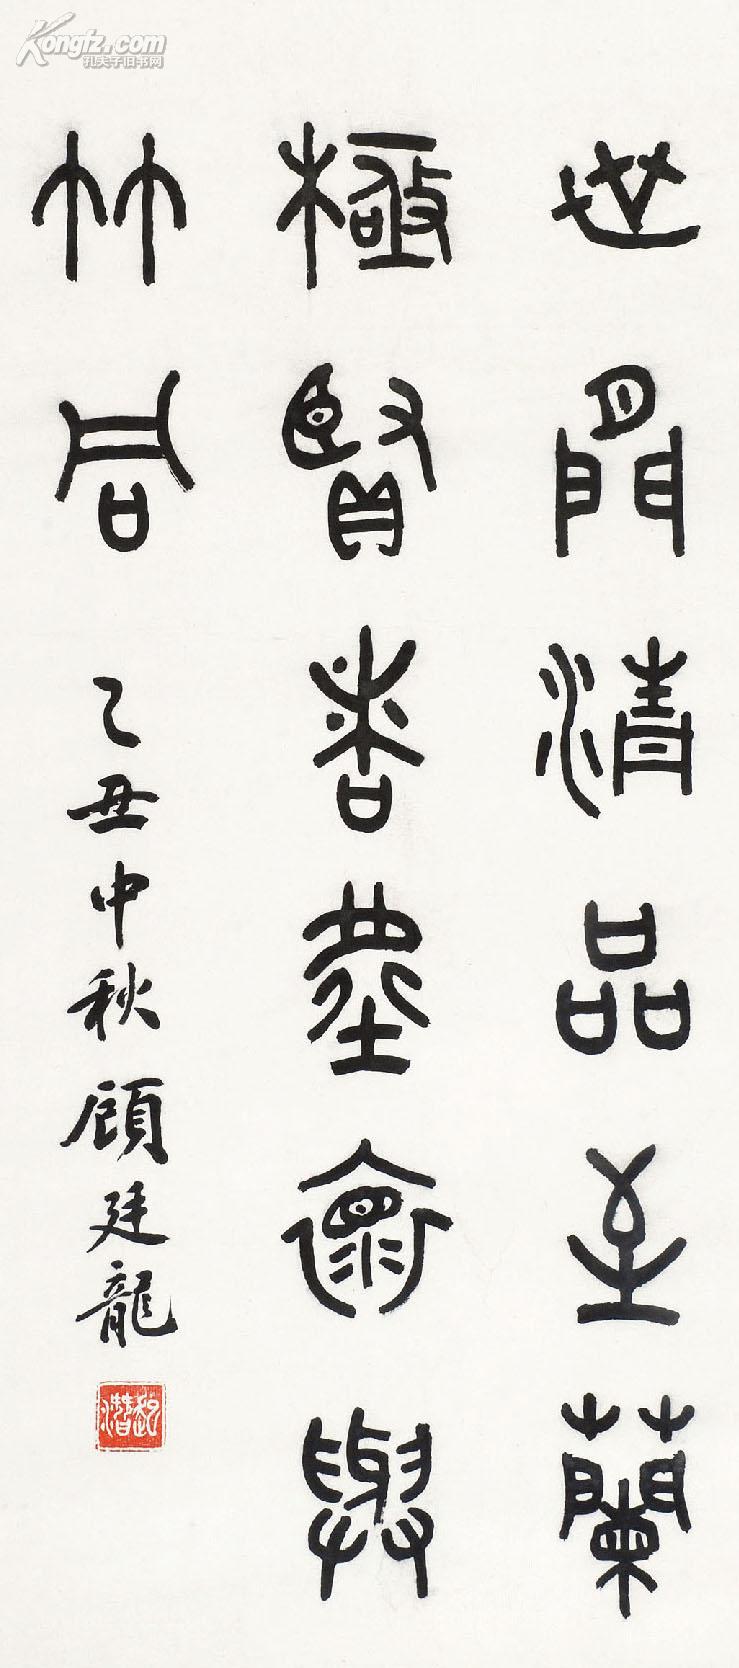 Kongfz.com
孔夫子旧书网
世間清品至蘭
極賢者虛懷與
竹同
乙丑中秋顧廷龍
起潛